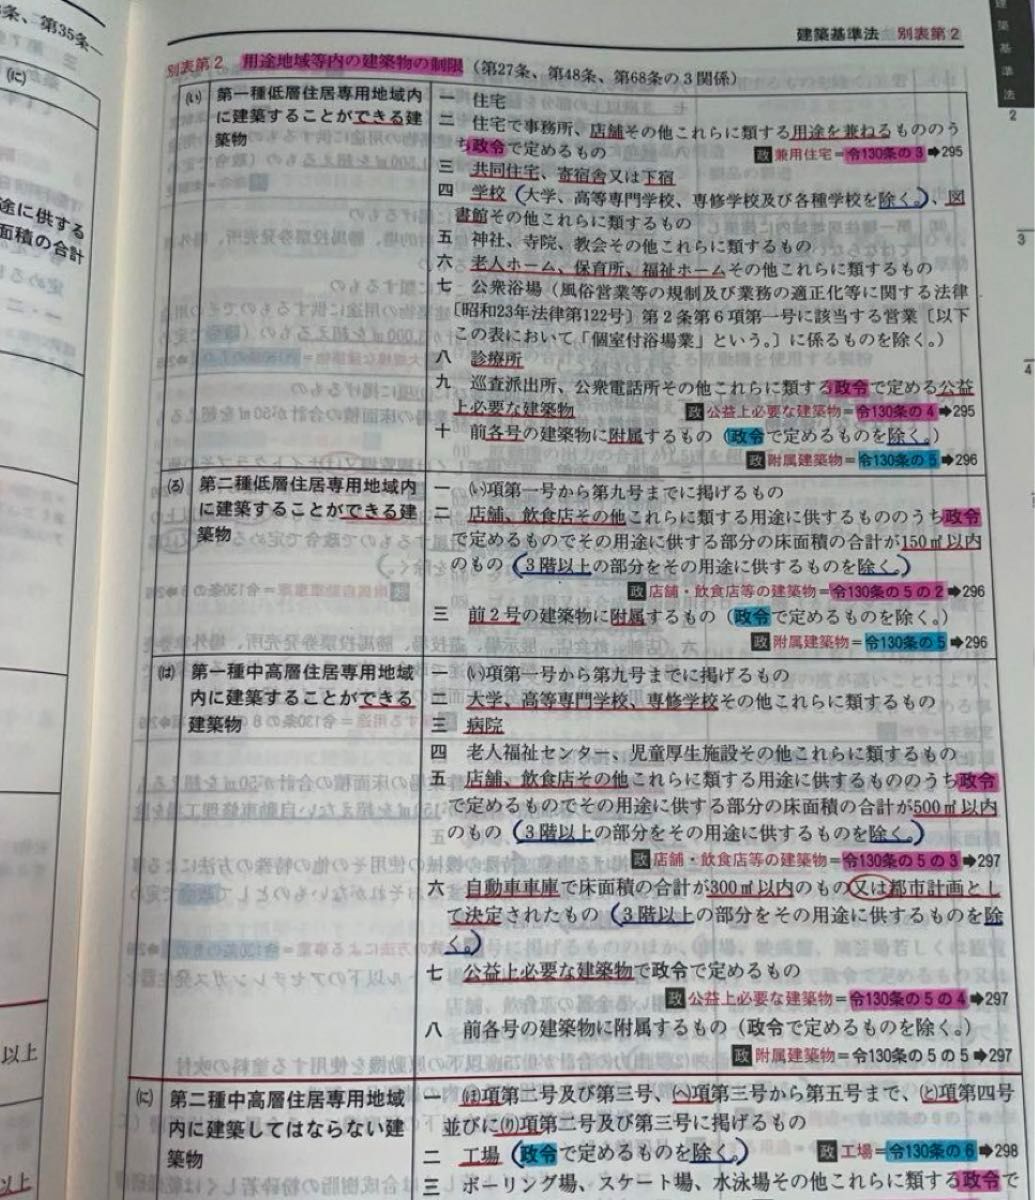 条、第35条―
(に)
途に供する
面積の合計
以上
以上
建築基準法 別表第2
建築基準法
2
3
4
別表第2 用途地域等内の建築物の制限（第27条、第48条、第68条の3関係）
(い) 第一種低層住居専用地域内
に建築することができる建
築物
一 住宅
二 住宅で事務所、店舗その他これらに類する用途を兼ねるもののう
ち政令で定めるもの 政 兼用住宅=令130条の3➡295
三 共同住宅、寄宿舎又は下宿
四 学校（大学、高等専門学校、専修学校及び各種学校を除く。）、図
書館その他これらに類するもの
五 神社、寺院、教会その他これらに類するもの
六 老人ホーム、保育所、福祉ホームその他これらに類するもの
七 公衆浴場（風俗営業等の規制及び業務の適正化等に関する法律
〔昭和23年法律第122号〕第2条第6項第一号に該当する営業〔以下
この表において「個室付浴場業」という。〕に係るものを除く。）
八 診療所
九 巡査派出所、公衆電話所その他これらに類する政令で定める公益
上必要な建築物 政 公益上必要な建築物=令130条の4➡295
十 前各号の建築物に附属するもの（政令で定めるものを除く。）
政 附属建築物=令130条の5➡296
(ろ) 第二種低層住居専用地域内
に建築することができる建
築物
一 (い)項第一号から第九号までに掲げるもの
二 店舗、飲食店その他これらに類する用途に供するもののうち政令
で定めるものでその用途に供する部分の床面積の合計が150㎡以内
のもの（3階以上の部分をその用途に供するものを除く。）
政 店舗・飲食店等の建築物=令130条の5の2➡296
三 前2号の建築物に附属するもの（政令で定めるものを除く。）
政 附属建築物=令130条の5➡296
(は) 第一種中高層住居専用地域
内に建築することができる
建築物
一 (い)項第一号から第九号までに掲げるもの
二 大学、高等専門学校、専修学校その他これらに類するもの
三 病院
四 老人福祉センター、児童厚生施設その他これらに類するもの
五 店舗、飲食店その他これらに類する用途に供するもののうち政令
で定めるものでその用途に供する部分の床面積の合計が500㎡以内
のもの（3階以上の部分をその用途に供するものを除く。）
政 店舗・飲食店等の建築物=令130条の5の3➡297
六 自動車車庫で床面積の合計が300㎡以内のもの又は都市計画とし
て決定されたもの（3階以上の部分をその用途に供するものを除
く。）
七 公益上必要な建築物で政令で定めるもの
政 公益上必要な建築物=令130条の5の4➡297
八 前各号の建築物に附属するもの（政令で定めるものを除く。）
政 附属建築物=令130条の5の5➡297
(に) 第二種中高層住居専用地域
内に建築してはならない建
築物
一 (ほ)項第二号及び第三号、(へ)項第三号から第五号まで、(と)項第四号
並びに(り)項第二号及び第三号に掲げるもの
二 工場（政令で定めるものを除く。） 政 工場=令130条の6➡298
三 ボーリング場、スケート場、水泳場その他これらに類する政令で